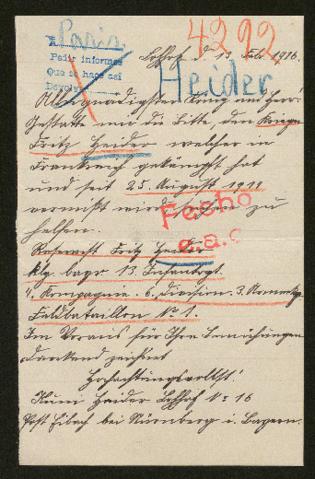 4292
Paris
Pedir informes
Que se hace así
Devolver
Lohhof d. 13. Febr. 1916.
Heider
Allergnädigster König und Herr!
Gestatte mir die Bitte, den Krieger
Fritz Heider welcher in
Frankreich gekämpft hat
und seit 25. August 1914
vermißt wird suchen zu
helfen.
Fecho
e.a.c
Reservist Fritz Heider
klg. bayr. 13. Infantergt.
4. Kompagnie. 6. Division. 3. Armeekp.
Feldbataillon No 1.
Im Voraus für Ihre Bemühungen
dankend zeichnet
Hochachtungsvollst!
Heider Lohhof No 16
Post Eibach bei Nürnberg i. Bayern.